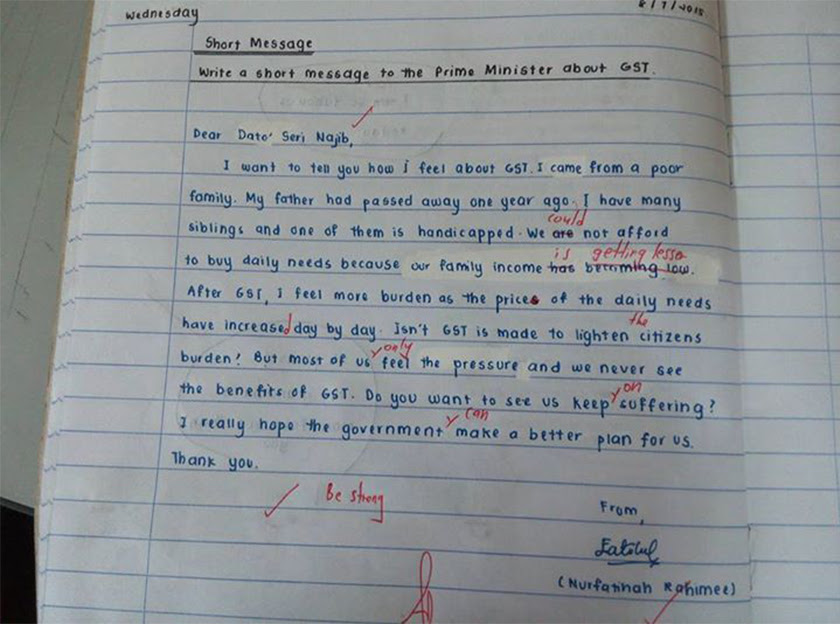 Wednesday
8/7/2015.
Short Message
Write a short message to the Prime Minister about GST.
Dear Dato' Seri Najib,
I want to tell you how i feel about GST. I came from a poor
family. My father had passed away one year ago. I have many
could
siblings and one of them is handicapped. We are not afford
is getting lesse
to buy daily needs because our family income has becoming low.
After GST, I feel more burden as the prices of the daily needs
the
have increased day by day. Isn't GST is made to lighten citizens
only
burden? But most of us feel the pressure and we never see
on
the benefits of GST. Do you want to see us keep suffering?
can
I really hope the government make a better plan for us.
Thank you.
Be strong
From,
(Nurfatinah Rahimee)